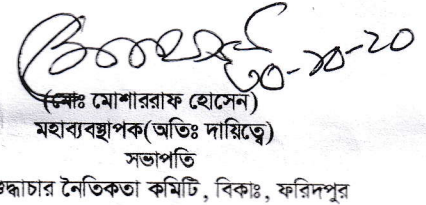 ৩০-১০-২০
(মোঃ মোশাররাফ হোসেন)
মহাব্যবস্থাপক(অতিঃ দায়িত্বে)
সভাপতি
শুদ্ধাচার নৈতিকতা কমিটি, বিকাঃ, ফরিদপুর